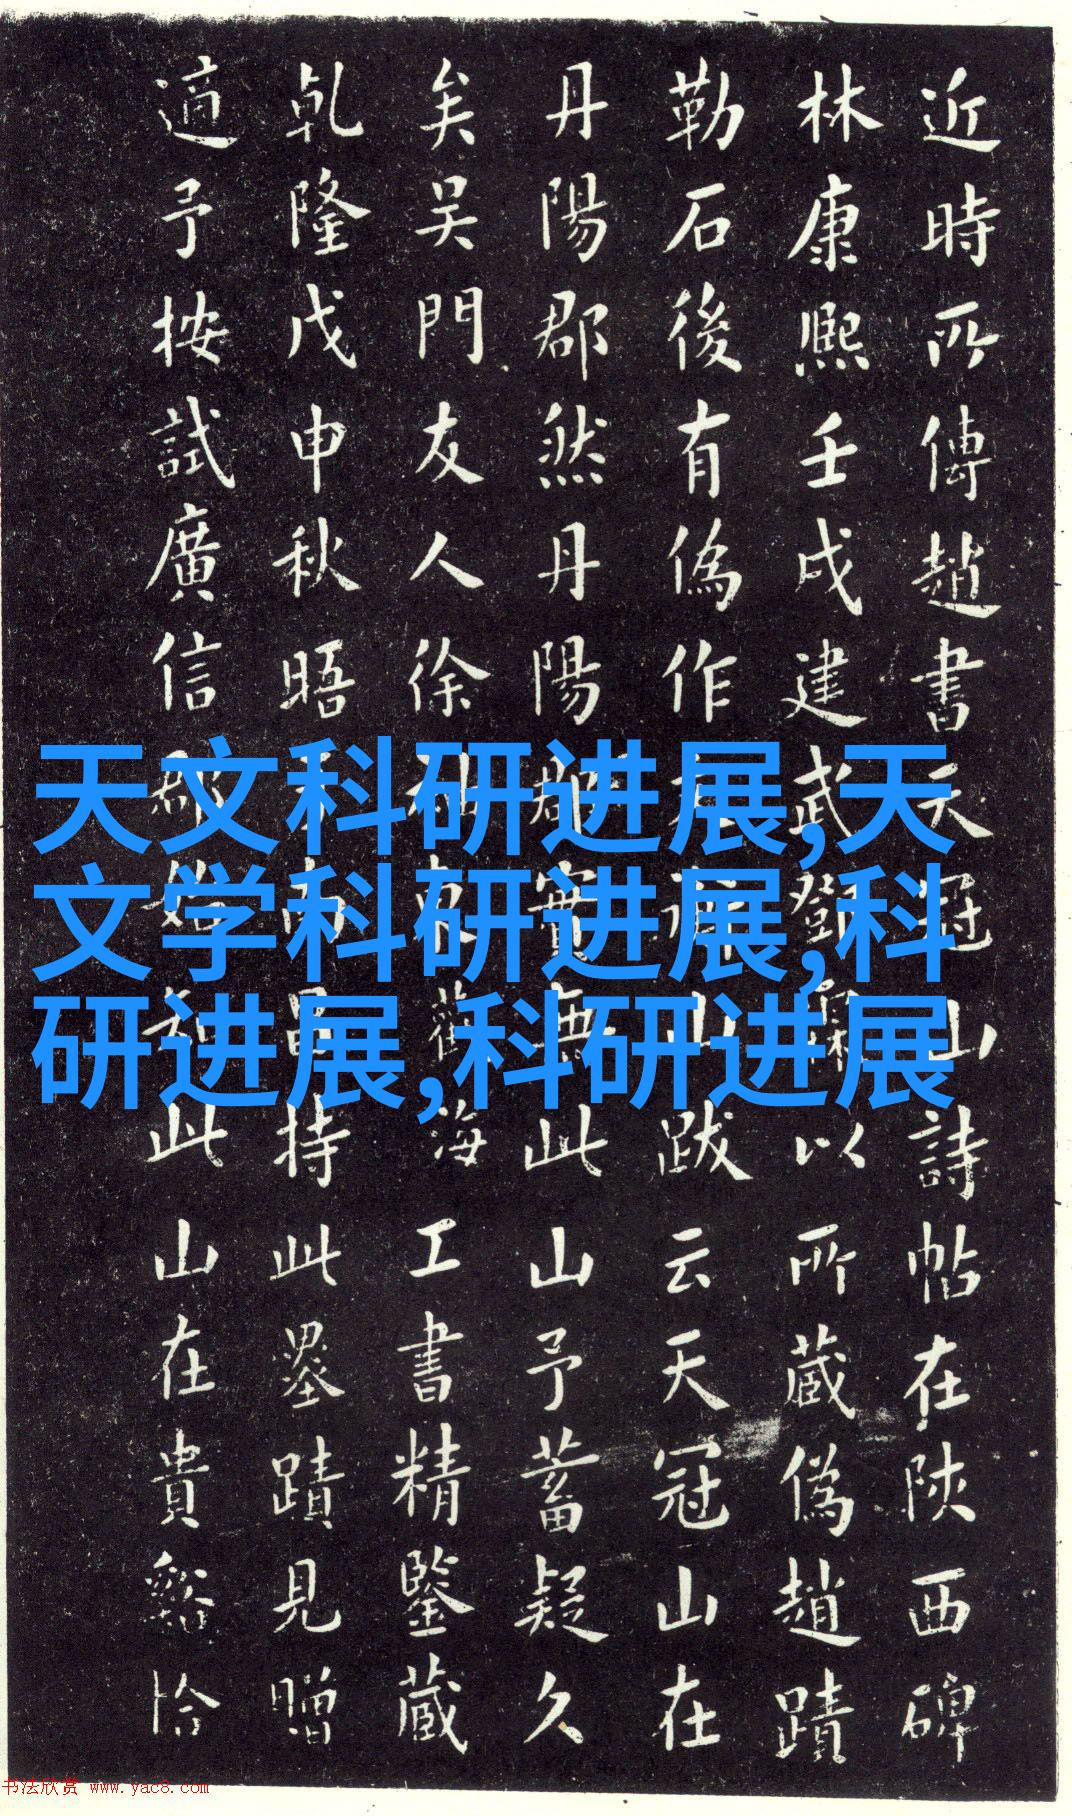 近時所傳趙書天冠山詩帖在陝西碑
林康熙壬戌建武鄧霖以所藏偽趙蹟
勒石後有偽作文衡山跋云天冠山在
丹陽郡然丹陽郡實無此山予蓄疑久
矣吴門友人徐 觀海工書精鑒藏
乹隆戊申秋晤 南昌持此墨蹟見贈
適予按試廣信郡始知此山在貴谿恰
天文科研进展,天
文学科研进展,科
研进展,科研进展
书法欣赏 www.yac8.com